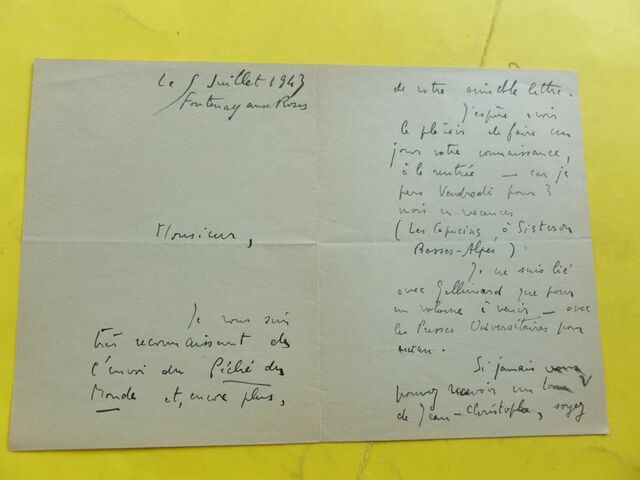 Le 5 Juillet 1943
Fontenay aux Roses
Monsieur,
Je vous suis
très reconnaissant de
l'envoi du Péché du
Monde et, encore plus,
de votre aimable lettre.
J'espère avoir
le plaisir de faire un
jour votre connaissance,
à la rentrée — car je
pars Vendredi pour 3
mois en vacances
(Les Capucins, à Sisteron
Basses-Alpes).
Je ne suis lié
avec Gallimard que pour
un volume à venir — avec
les Presses Universitaires pour
aucun.
Si jamais vous
pouvez recevoir un tome
de Jean-Christophe, soyez